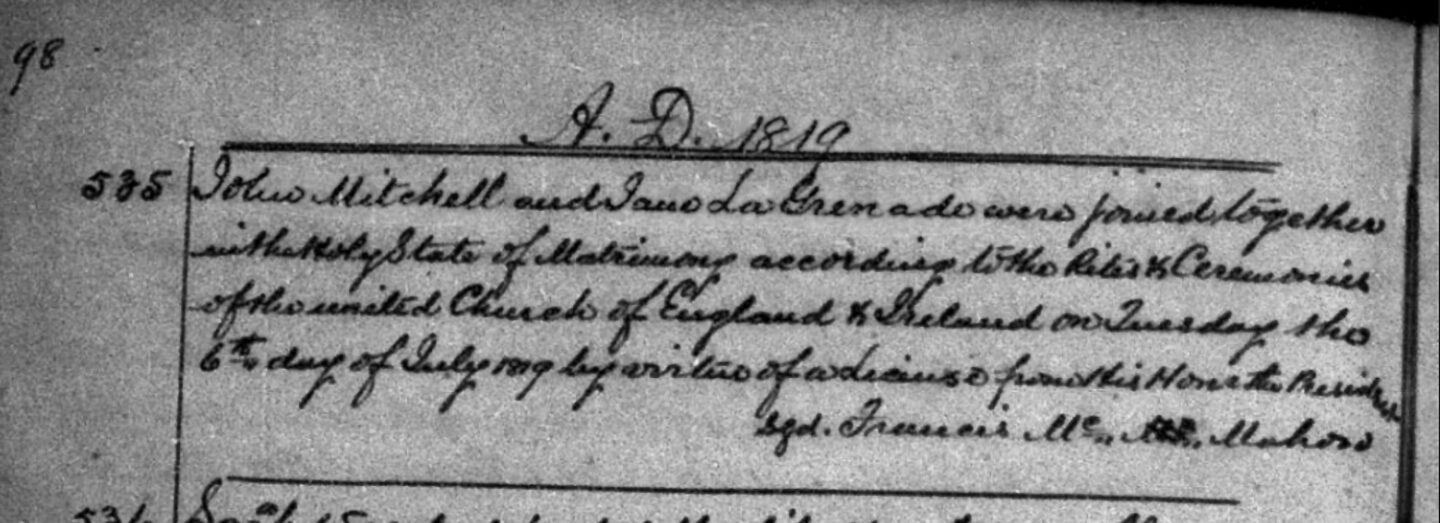 98
A. D. 1819
535 John Mitchell and Jane La Grenade were joined together
in the Holy State of Matrimony according to the Rites & Ceremonies
of the united Church of England & Ireland on Tuesday the
6th day of July 1819 by virtue of a License from His Honr. the President
sgd. Francis Mc. Mahon
536